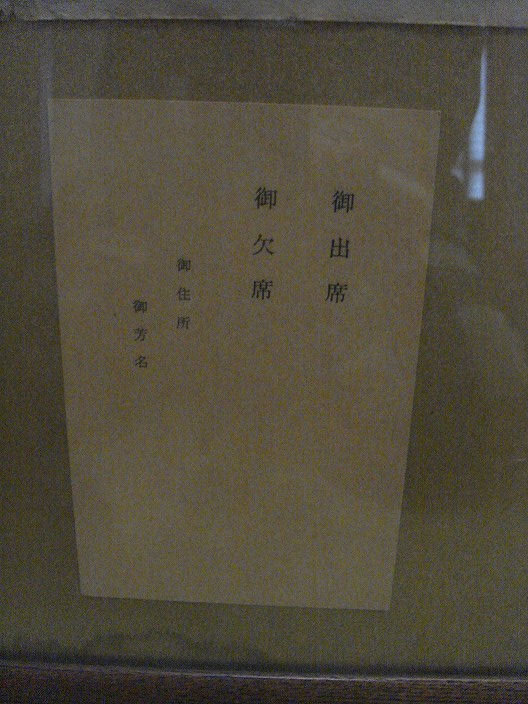 御出席
御欠席
御住所
御芳名